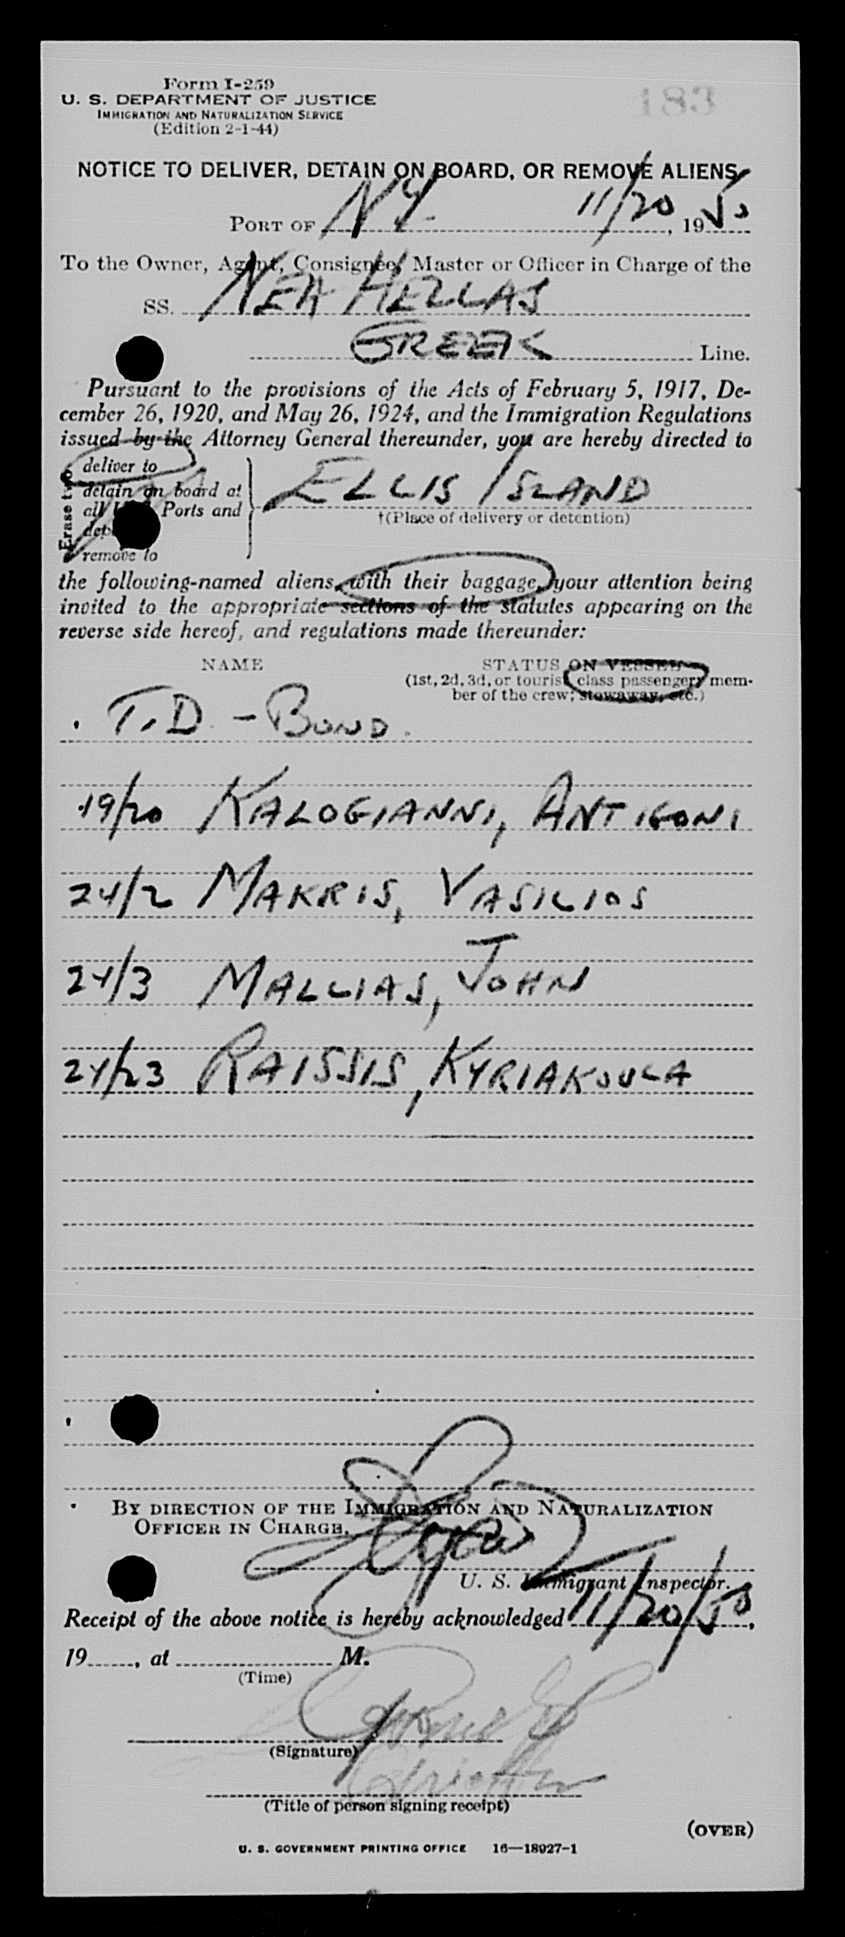 Form I-259
U. S. DEPARTMENT OF JUSTICE
IMMIGRATION AND NATURALIZATION SERVICE
(Edition 2-1-44)
183
NOTICE TO DELIVER, DETAIN ON BOARD, OR REMOVE ALIENS
PORT OF NY. 11/20, 1950
To the Owner, Agent, Consignee, Master or Officer in Charge of the
SS. NEA HELLAS
GREEK Line.
Pursuant to the provisions of the Acts of February 5, 1917, De-
cember 26, 1920, and May 26, 1924, and the Immigration Regulations
issued by the Attorney General thereunder, you are hereby directed to
Erase two
deliver to
detain on board at
all Ports and
remove to
ELLIS ISLAND
†(Place of delivery or detention)
the following-named aliens, with their baggage, your attention being
invited to the appropriate sections of the statutes appearing on the
reverse side hereof, and regulations made thereunder:
NAME STATUS ON VESSEL
(1st, 2d, 3d, or tourist class passenger; mem-
ber of the crew; stowaway, etc.)
T.D - BOND.
19/20 KALOGIANNI, ANTIGONI
24/2 MAKRIS, VASILIOS
24/3 MALLIAS, JOHN
24/23 RAISSIS, KYRIAKOULA
BY DIRECTION OF THE IMMIGRATION AND NATURALIZATION
OFFICER IN CHARGE,
U. S. Immigrant Inspector.
Receipt of the above notice is hereby acknowledged 11/20/50,
19......, at ........................ M.
(Time)
(Signature)
(Title of person signing receipt)
(OVER)
U. S. GOVERNMENT PRINTING OFFICE 16—18927-1